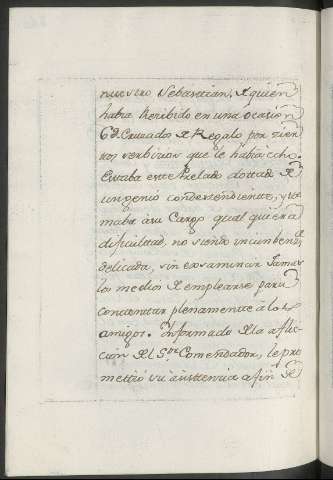 nuestro Sebastian, de quien
habia Recibido en una ocasion
6d. Cruzados de Regalo por zier
tos serbizios que le habia echo.
Estaba este Prelado dottado de
un genio condesendiente, y to
maba à su Cargo qual quiera
dificulttad, no siendo incunbend.ª
delicada, sin exsaminar Jamas
los medios de emplearse para
conttenttar plenamentte à los
amigos. Informado de la aflic
cion del S.or Comendador, le pro
mettió su àsisttencia a fin de